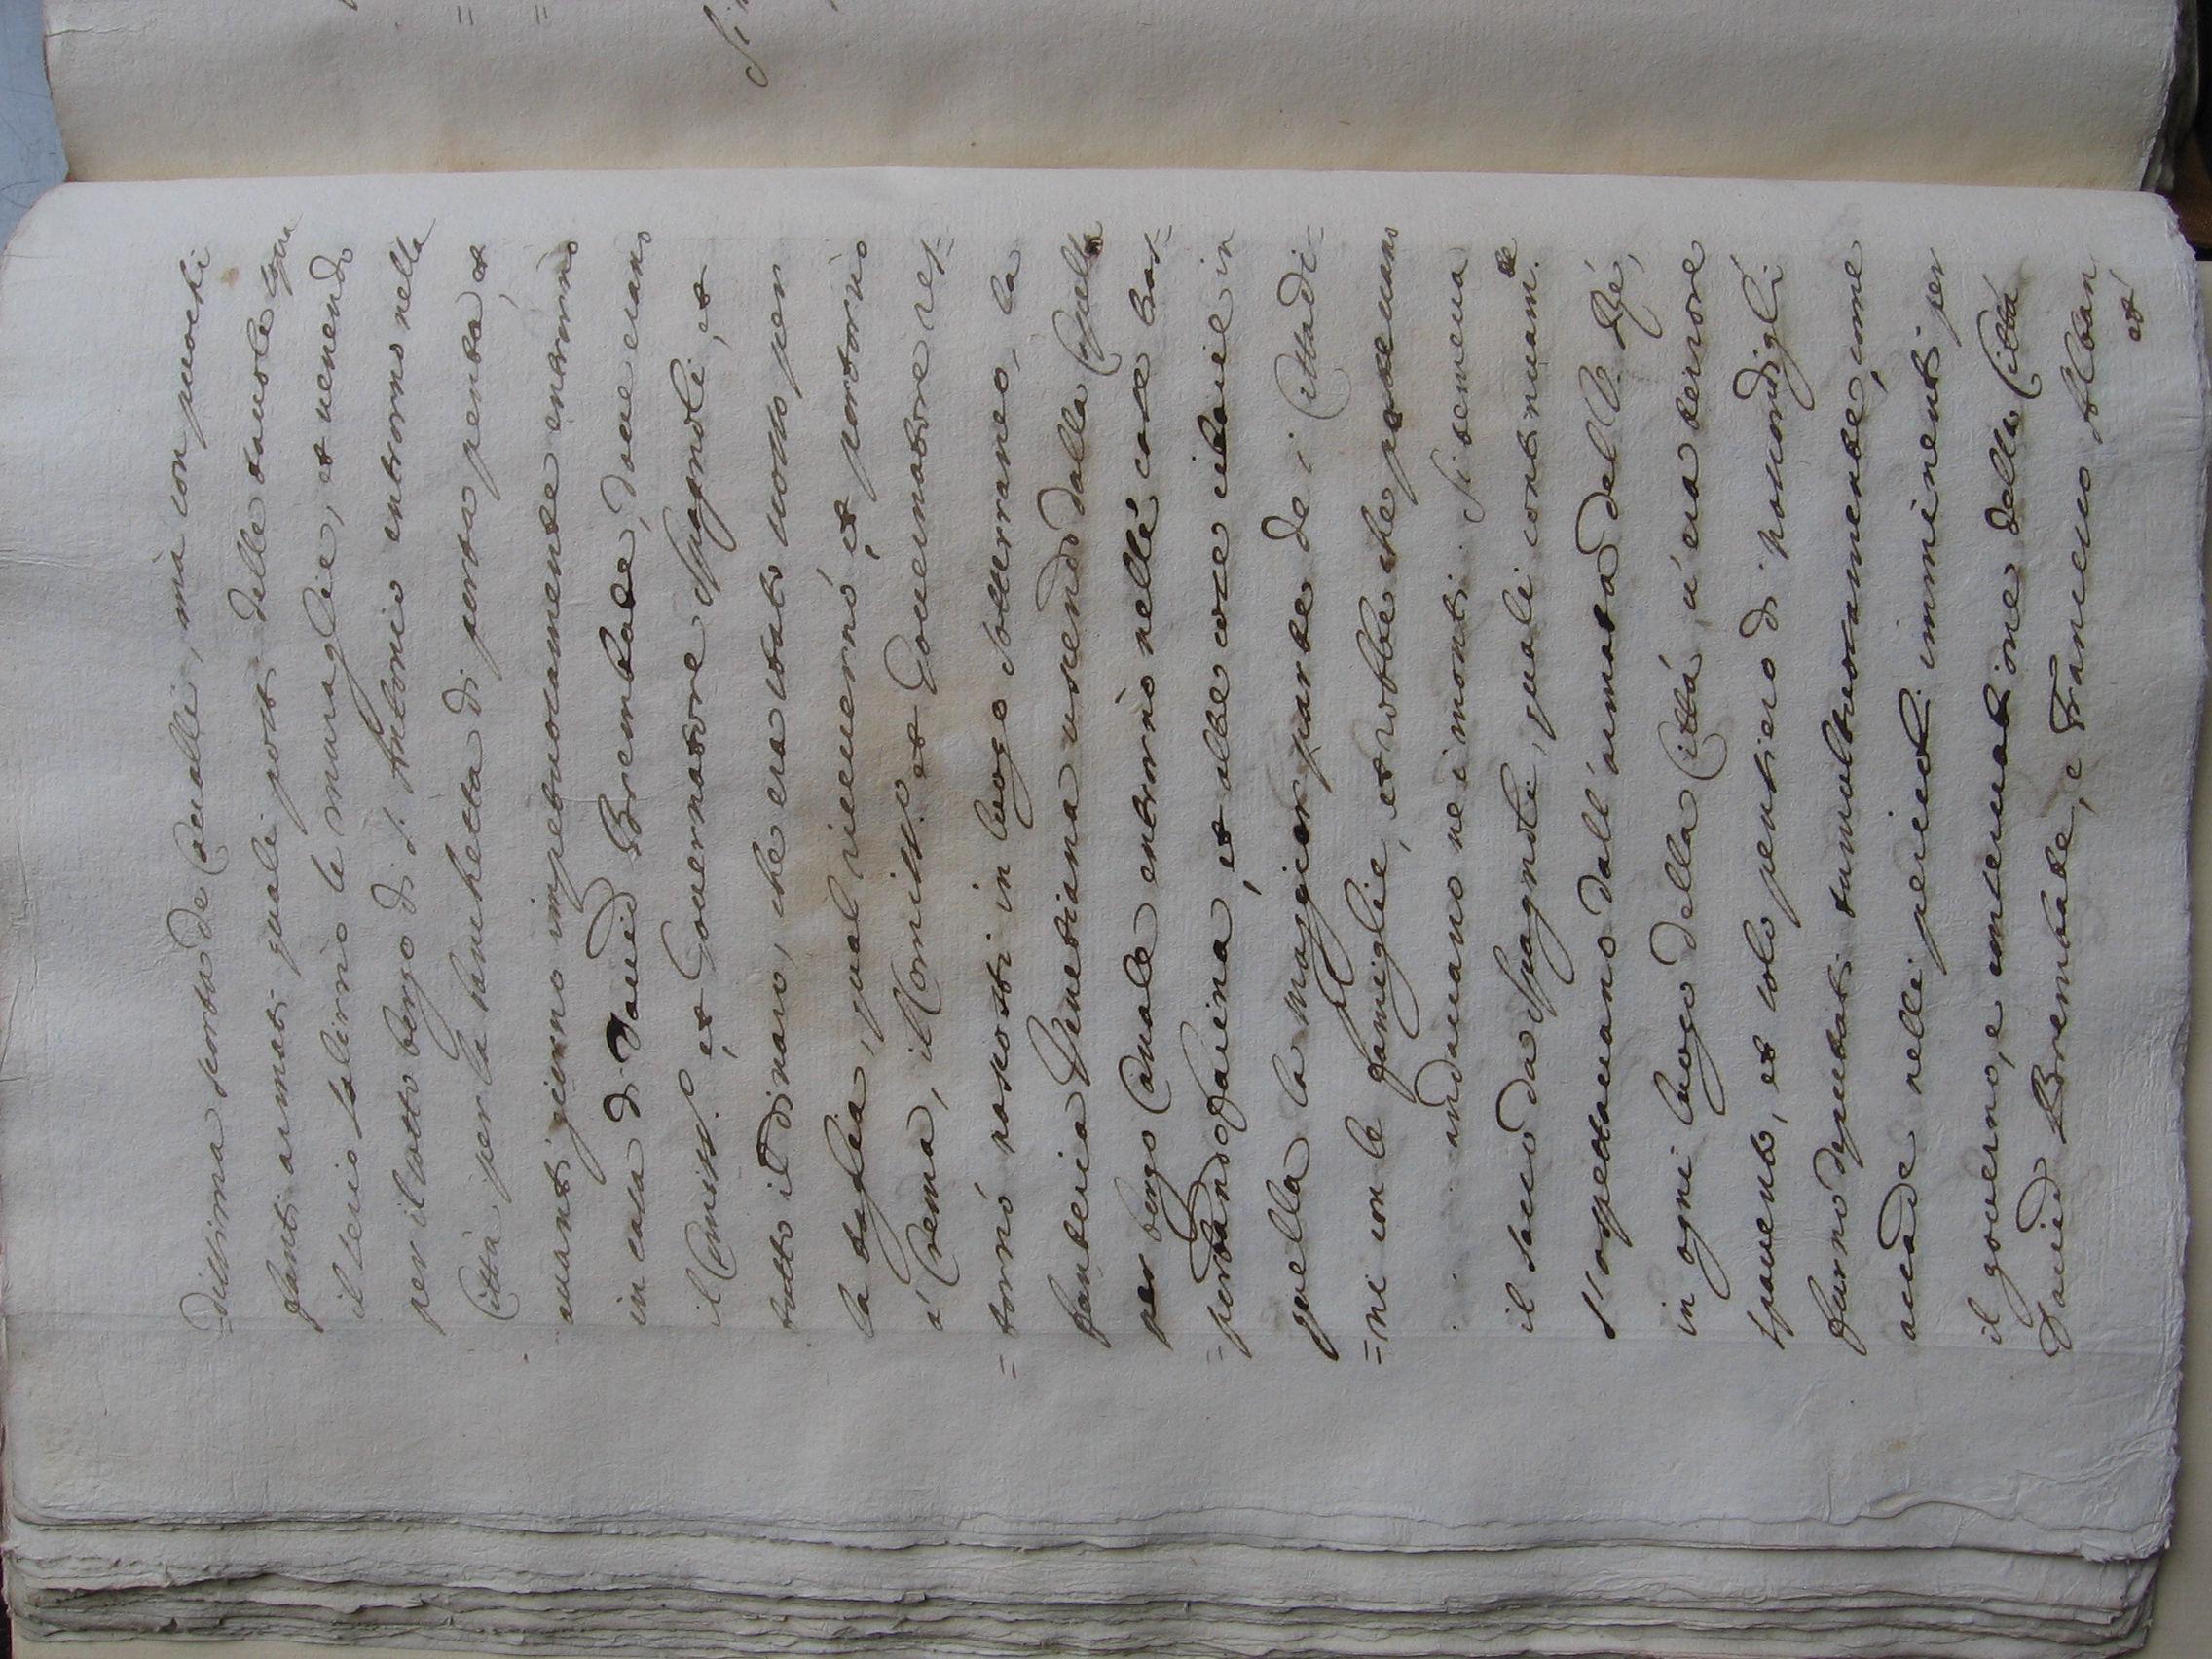 dettissima scorta de Cavalli, mà con puochi
fanti armati quali posti delle tauole sopra
il serio salirno le muraglie, et uenendo
per il sotto borgo di S. Antonio entrorno nella
Città per la banchetta di porta penta, et
auanti giorno impetuosamente entrorno
in casa di Dauid Brembate, doue erano
il Comiss.º, et Gouernatore Spagnoli, et
tutto il dinaro, che era stato scosso per
la taglia, qual riceuerno, et portorno
à Crema, il Comiss.º et Gouernatore res=
=torno nascosti in luogo sotterraneo, la
fanteria Venetiana uscendo dalla Capella
per borgo Canale entrorno nelle case tras=
=portando farina, et altre cose cibarie in
quella la maggior parte de i Cittadi=
=ni con le famiglie, et robbe che poteuano
andauano ne i monti. Si temeua
il sacco da Spagnoli, quali continuam.te
s'aspettauano dall'armata dell Rè,
in ogni luogo della Città, u'era terrore
spauento, et solo pensiero di nascondigli
furno deputati tumultuosamente, come
accade nelli pericoli imminenti per
il gouerno, e conseruatione della Città
Dauid Brembate, e Francesco Alban,
et